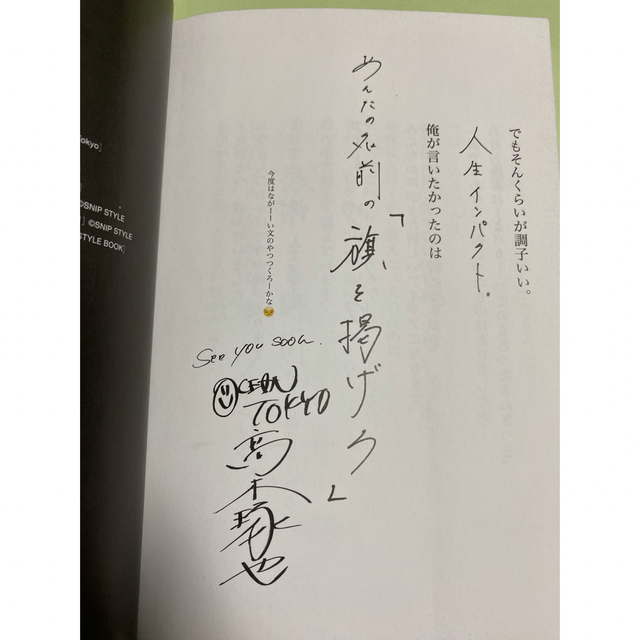 でもそんくらいが調子いい。
人生インパクト。
俺が言いたかったのは
「あんたの名前の旗を掲げろ」
今度はながーーい文のやつつくろーかな
See you soon.
OCEAN
TOKYO
高木琢也
okyo]
©SNIP STYLE
] ©SNIP STYLE
STYLE BOOK]